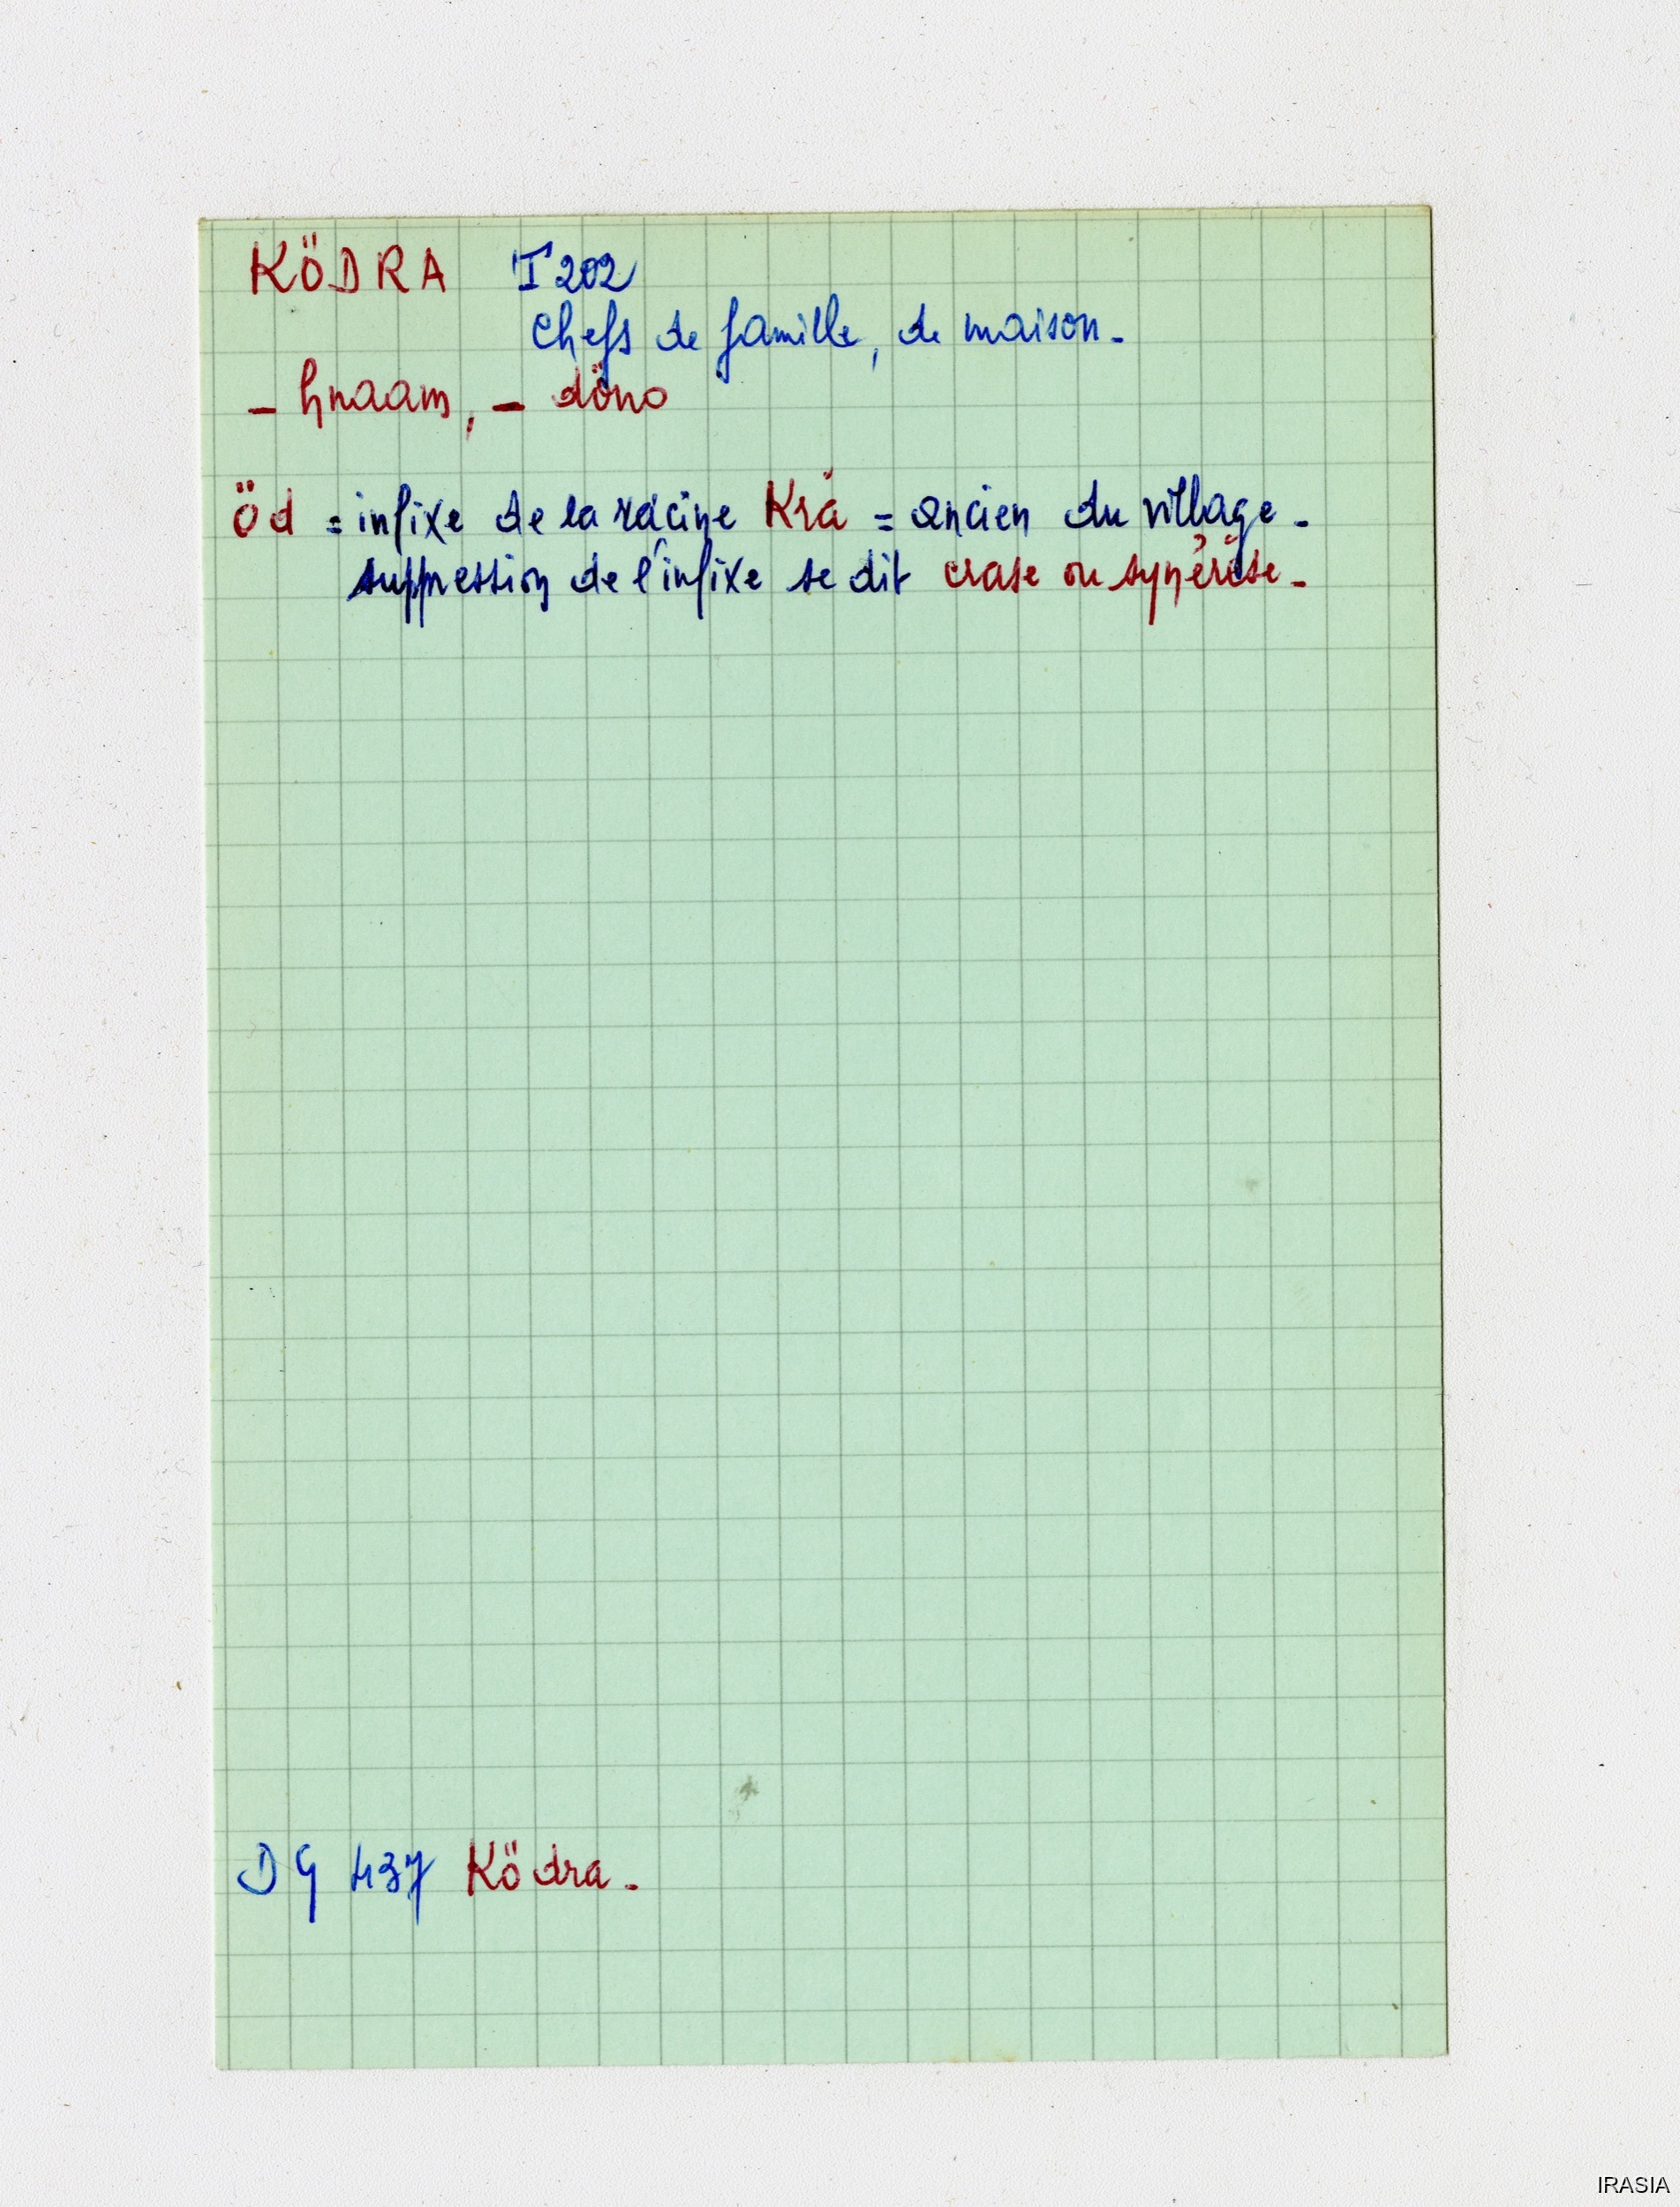 KÖDRA I 202
Chefs de famille, de maison.
- hnaam, - döno
Öd = infixe de la racine Kra = ancien du village.
suppression de l'infixe se dit crase ou synérèse.
DG 437 Ködra.
IRASIA